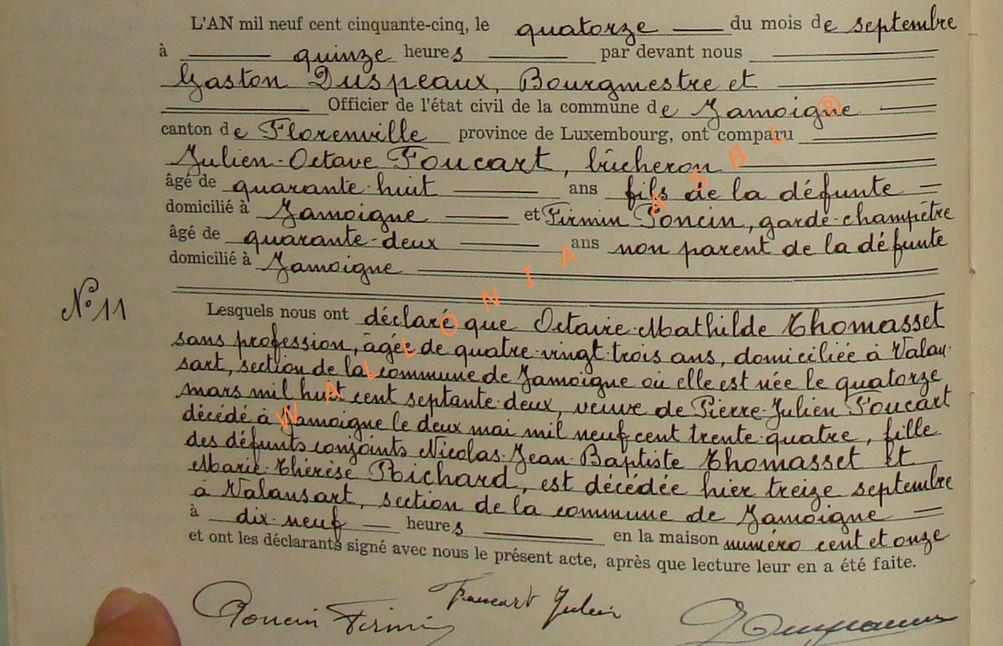 L'AN mil neuf cent cinquante-cinq, le quatorze du mois de septembre
à quinze heures par devant nous
Gaston Duspeaux, Bourgmestre et
Officier de l'état civil de la commune de Jamoigne
canton de Florenville province de Luxembourg, ont comparu
Julien-Octave Foucart, bûcheron
âgé de quarante-huit ans fils de la défunte
domicilié à Jamoigne et Firmin Poncin, garde-champêtre
âgé de quarante-deux ans non parent de la défunte
domicilié à Jamoigne
N° 11
Lesquels nous ont déclaré que Octavie-Mathilde Thomasset
sans profession, âgée de quatre-vingt-trois ans, domiciliée à Valan-
sart, section de la commune de Jamoigne où elle est née le quatorze
mars mil huit cent septante-deux, veuve de Pierre-Julien Foucart
décédé à Jamoigne le deux mai mil neuf cent trente-quatre, fille
des défunts conjoints Nicolas-Jean-Baptiste Thomasset et
Marie-Thérèse Richard, est décédée hier treize septembre
à Valansart, section de la commune de Jamoigne
à dix-neuf heures en la maison numéro cent et onze
et ont les déclarants signé avec nous le présent acte, après que lecture leur en a été faite.
Poncin Firmin Foucart Julien
WALLONIA ASBL ®